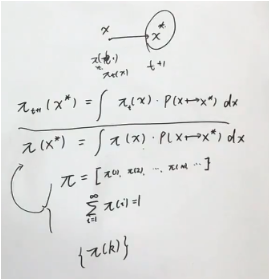 x x*
π(x)
π_t(x) t+1
π_{t+1}(x*) = ∫ π_t(x) · P(x↦x*) dx
π(x*) = ∫ π(x) · P(x↦x*) dx
π = [π(1), π(2), ..., π(k), ...]
∞
∑ π(i) = 1
i=1
{π(k)}